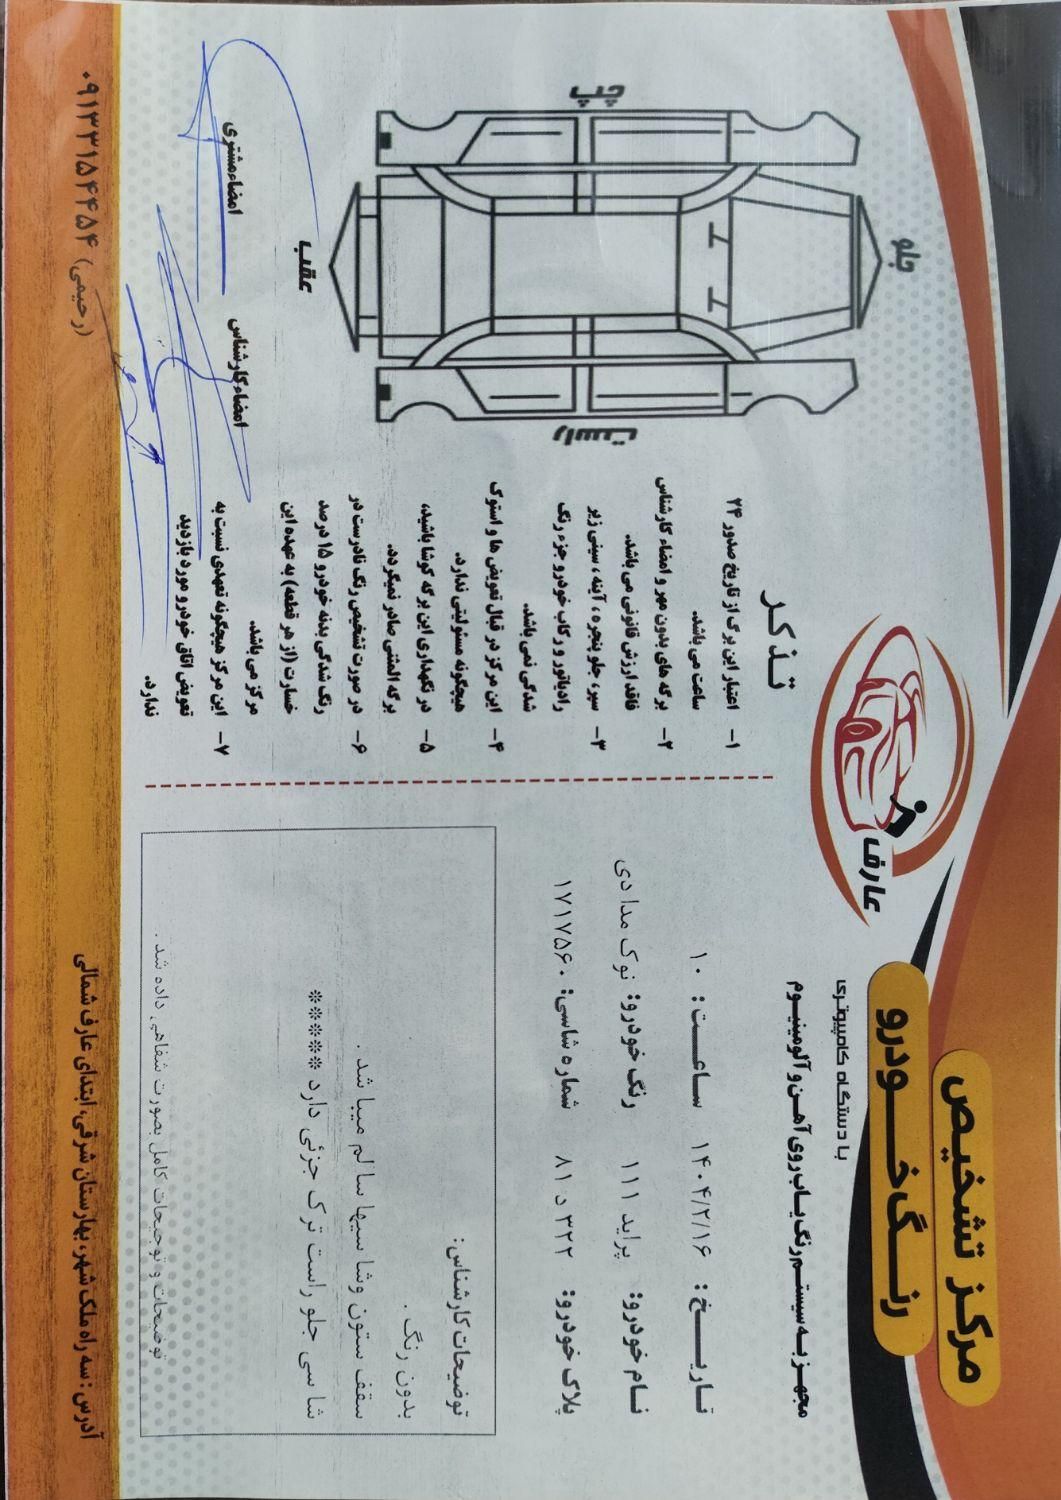 مرکز تشخیص
رنگ خودرو
با دستگاه کامپیوتری
مجهز به سیستم رنگ یاب روی آهن و آلومینیوم
عارف
تاریخ: ۱۴۰۴/۲/۱۶ ساعت: ۱۰
نام خودرو: پراید ۱۱۱ رنگ خودرو: نوک مدادی
پلاک خودرو: ۳۲۲ د ۸۱ شماره شاسی: ۱۷۱۷۵۶۰
توضیحات کارشناس:
بدون رنگ .
سقف ستون وشاسیها سالم میباشد .
شاسی جلو راست ترک جزئی دارد ****
توضیحات و توجیحات کامل بصورت شفاهی داده شد .
تذکر
۱- اعتبار این برگ از تاریخ صدور ۲۴
ساعت می باشد.
۲- برگه های بدون مهر و امضاء کارشناس
فاقد ارزش قانونی می باشد.
۳- سپر، جلو پنجره، آینه، سینی زیر
رادیاتور و رکاب خودرو جزء رنگ
شدگی نمی باشد.
۴- این مرکز در قبال تعویض ها و استوک
هیچگونه مسئولیتی ندارد.
۵- در نگهداری این برگه کوشا باشید،
برگه المثنی صادر نمیگردد.
۶- در صورت تشخیص رنگ نادرست در
رنگ شدگی بدنه خودرو ۱۵ درصد
خسارت (از هر قطعه) به عهده این
مرکز می باشد.
۷- این مرکز هیچگونه تعهدی نسبت به
تعویض اتاق خودرو مورد بازدید
ندارد.
چپ
جلو
عقب
راست
امضاء کارشناس
امضاء مشتری
آدرس : سه راه ملک شهر، بهارستان شرقی، ابتدای عارف شمالی
۰۹۱۳۳۱۵۴۴۵۴ (رحیمی)